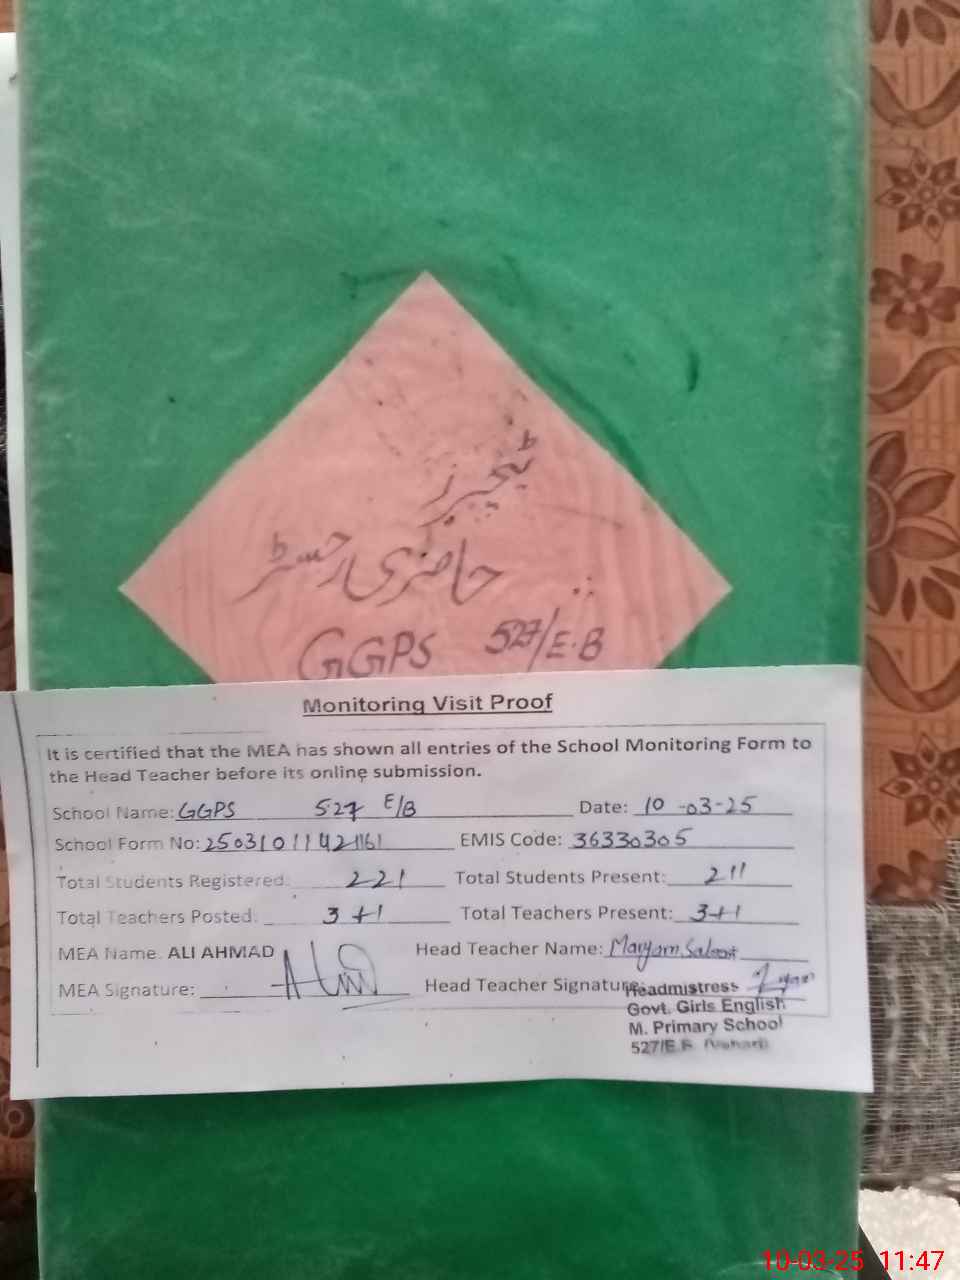 ٹیچرز
حاضری رجسٹر
GGPS 527/E.B
Monitoring Visit Proof
It is certified that the MEA has shown all entries of the School Monitoring Form to
the Head Teacher before its online submission.
School Name: GGPS 527 E/B Date: 10-03-25
School Form No: EMIS Code: 36330305
Total Students Registered: 221 Total Students Present: 211
Total Teachers Posted: 3+1 Total Teachers Present: 3+1
MEA Name. ALI AHMAD Head Teacher Name: Maryam
MEA Signature: Head Teacher Signature:
Headmistress
Govt. Girls English
M. Primary School
527/E.B. (Vehari)
10-03-25 11:47